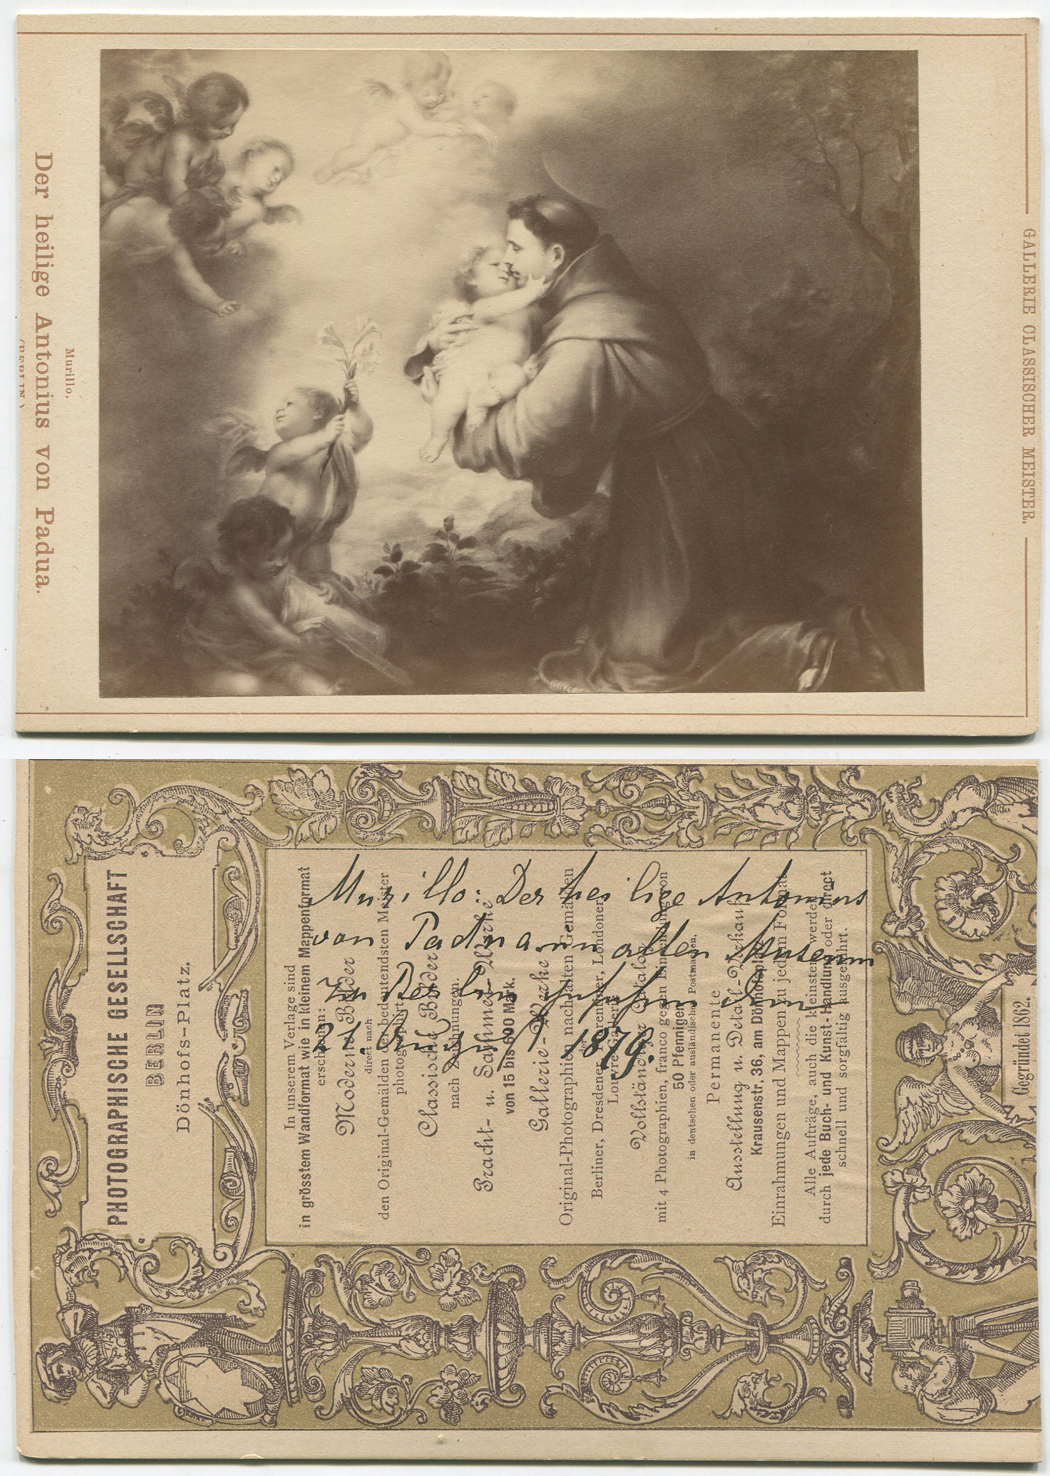 GALLERIE CLASSISCHER MEISTER.
Murillo.
Der heilige Antonius von Padua.
(BERLIN)
PHOTOGRAPHISCHE GESELLSCHAFT
BERLIN
Dönhofs-Platz.
In unserem Verlage sind
in grösstem Wandformat wie in kleinem Mappenformat
erschienen:
Moderne Bilder
direct nach
den Original-Gemälden der bedeutendsten Meister
photographirt.
Classische Bilder
nach Zeichnungen.
Pracht- u. Sammel-Werke
von 15 bis 600 Mark.
Gallerie-Werke
Original-Photographien nach alten Gemälden
Berliner, Dresdener, Londoner
Louvre-Gallerie.
Vollständiger Catalog
mit 4 Photographien, franco gegen Einsendung von
50 Pfennigen
in deutschen oder ausländischen Postmarken.
Permanente
Ausstellung u. Detail-Verkauf
Krausenstr. 36, am Dönhofsplatz
Einrahmungen und Mappen zu jedem Format
Alle Aufträge, auch die kleinsten werden
durch jede Buch- und Kunst-Handlung oder direct
schnell und sorgfältig ausgeführt.
Gegründet 1862.
Murillo: Der heilige Antonius
von Padua im alten Museum
zu Berlin gesehen den
21. August 1879.